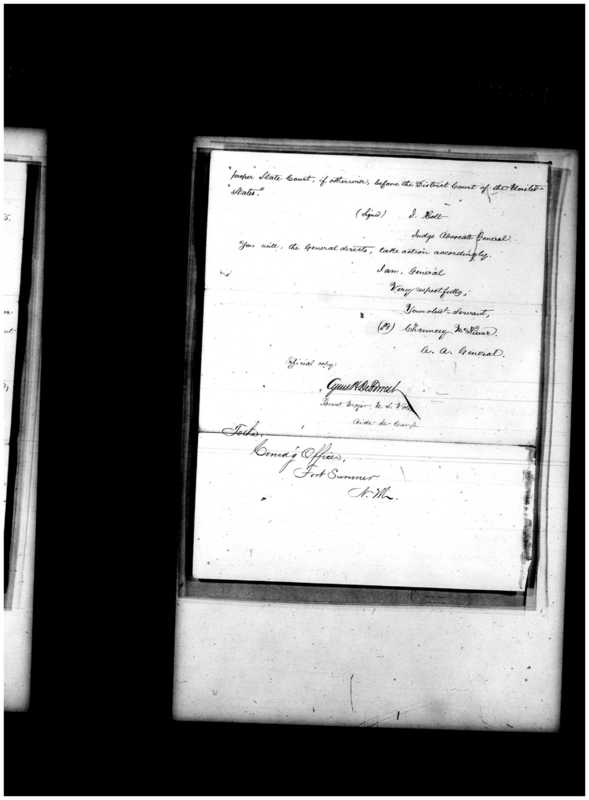 "proper State Court, if otherwise, before the District Court of the United-
"States."
(Signed) J. Holt
Judge Advocate General.
You will, the General directs, take action accordingly.
I am, General
Very respectfully,
Your obdt. Servant,
(Sg) Chauncey McKeever.
A. A. General.
Official copy:
Cyrus H. De Forrest
Brevet Major, U. S. Vols.
Aide de Camp
To the,
Comd'g Officer,
Fort Sumner
N. M.